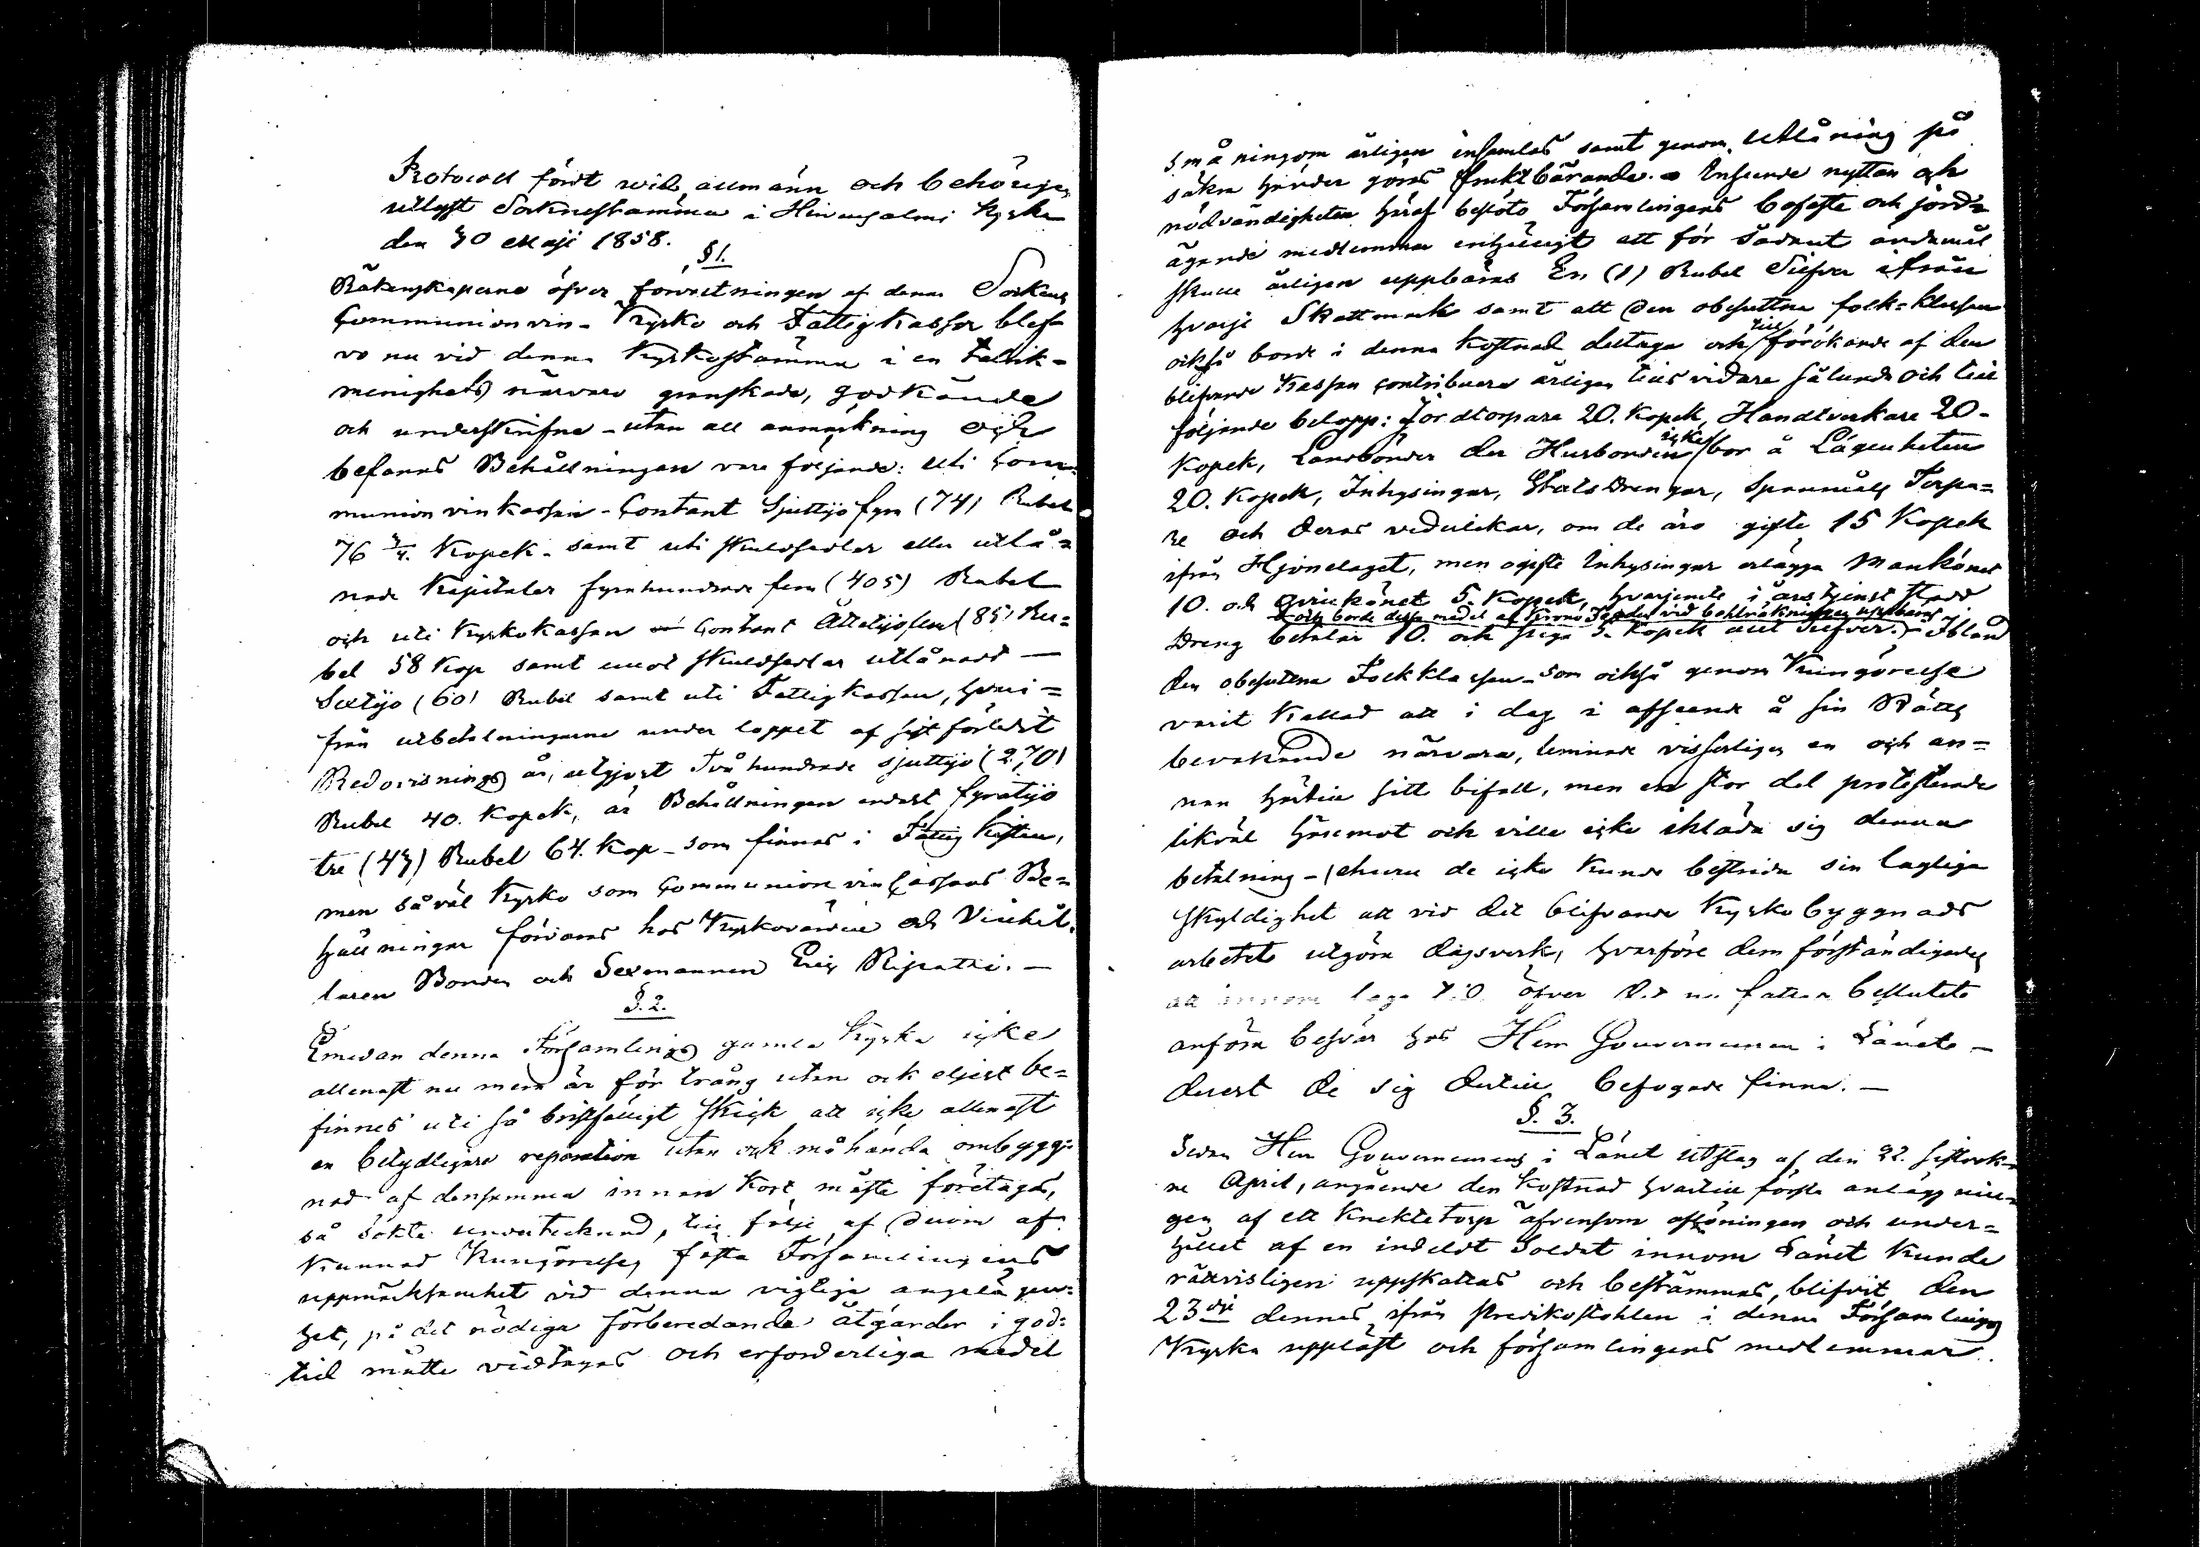 Protocoll fördt wid allmänn och behörigen
utlyst Socknestämma i Hirvensalmi Kyrka
den 30 Maji 1858.
§ 1.
Räkenskaperne öfver förvaltningen af denna Sockens
Communionvin- Kyrko och Fattigkassor blef-
vo nu vid denna Kyrkostämma i en talrik-
menighets närvaro granskade, godkände
och underskrifne - utan all anmärkning och
befanns Behållningen vara följande: uti Com-
munionvinkassan - Contant Sjuttijo fyra (74) Rubel
76 3/4. Kopek - samt uti skuldsedlar eller utlå-
nade Kapitaler fyrahundrade fem (405) Rubel
och uti Kyrkokassan Contant Åttatijofem (85) Ru-
bel 58 Kop samt emot skuldsedlar utlånadt —
Sextijo (60) Rubel samt uti Fattigkassan, hvari-
från utbetalningarne under loppet af sist förledit
Redovisnings år, utgjort Två hundrade sjuttijo (270)
Rubel 40. Kopek, är Behållningen endast fyratijo
tre (43) Rubel 64. Kop - som finnas i Fattig Kistan,
men såväl Kyrko som Communionvin Cassans Be-
hållningar förvaras hos Kyrkovärden och Vinhål-
laren Bonden och Sexmannen Eric Ripatti. —
§. 2.
Emedan denna Församlings gamla Kyrka icke
allenast nu mera är för trång utan ock eljest be-
finnes uti så bristfälligt skick att icke allenast
en betydligare reparation utan ock måhända ombygg-
nad af densamma innan kort måste företagas,
så sökte undertecknad, till följe af derom af-
kunnad Kungörelse, fästa Församlingens
uppmärksamhet vid denna vigtiga angelägen-
het, på det nödiga förberedande åtgärder i god-
tid måtte vidtagas och erforderliga medel
småningom årligen insamlas samt genom utlåning på
säkra händer göras fruktbärande. Inseende nyttan och
nödvändigheten häraf beslöto Församlingens besuttne och jord-
ägande medlemmar enhälligt att för sådant ändamål
skulle årligen uppbäras En (1) Rubel Silfver ifrån
hvarje Skattmark samt att den obesuttna folk-klassen
också borde i denna kostnad deltaga och till förökande af den
blifvande Kassan contribuera årligen tills vidare sålunda och till
följande belopp: Jordtorpare 20. Kopek, Handtverkare 20-
Kopek, Landbönder der Husbonden icke bor å Lägenheten
20. Kopek, Inhysingar, Statsdrengar, Spannmåls Torpa-
re och deras vederlikar, om de äro gifte 15 Kopek
ifrån Hjonelaget, men ogifte Inhysingar erlägga Mankönet
10. och qvinkönet 5. Kopek, hvarjemte i årstjenst stadd
och borde dessa medel af Krono Fogden vid behlräkningen uppbäras
Dreng betalar 10. och piga 5. Kopek allt Silfver. - Ibland
den obesuttna Folkklassen - som också genom Kungörelse
varit kallad att i dag i afseende å sin Rätts
bevakande närvara, lemnade visserligen en och an-
nan härtill sitt bifall, men en stor del protesterade
likväl häremot och ville icke ikläda sig denna
betalning - ehuru de icke kunde bestrida sin lagliga
skyldighet att vid det blifvande Kyrkobyggnads
arbetet utgöra dagsverk, hvarföre dem förständigades
att innom laga tid öfver det nu fattade beslutet
anföra besvär hos Herr Gouverneuren i Länet —
derest de sig dertill befogade finna. —
§. 3.
Sedan Herr Gouverneurens i Länet utslag af den 22. sistvek-
ne April, angående den kostnad hvartill första anlägg nin-
gen af ett Knektetorp äfvensom aflöningen och under-
hållet af en indeldt Soldat innom Länet kunde
rättvisligen uppskattas och bestämmas, blifvit den
23die dennes ifrån Predikostohlen i denna Församlings
Kyrka uppläst och församlingens medlemmar